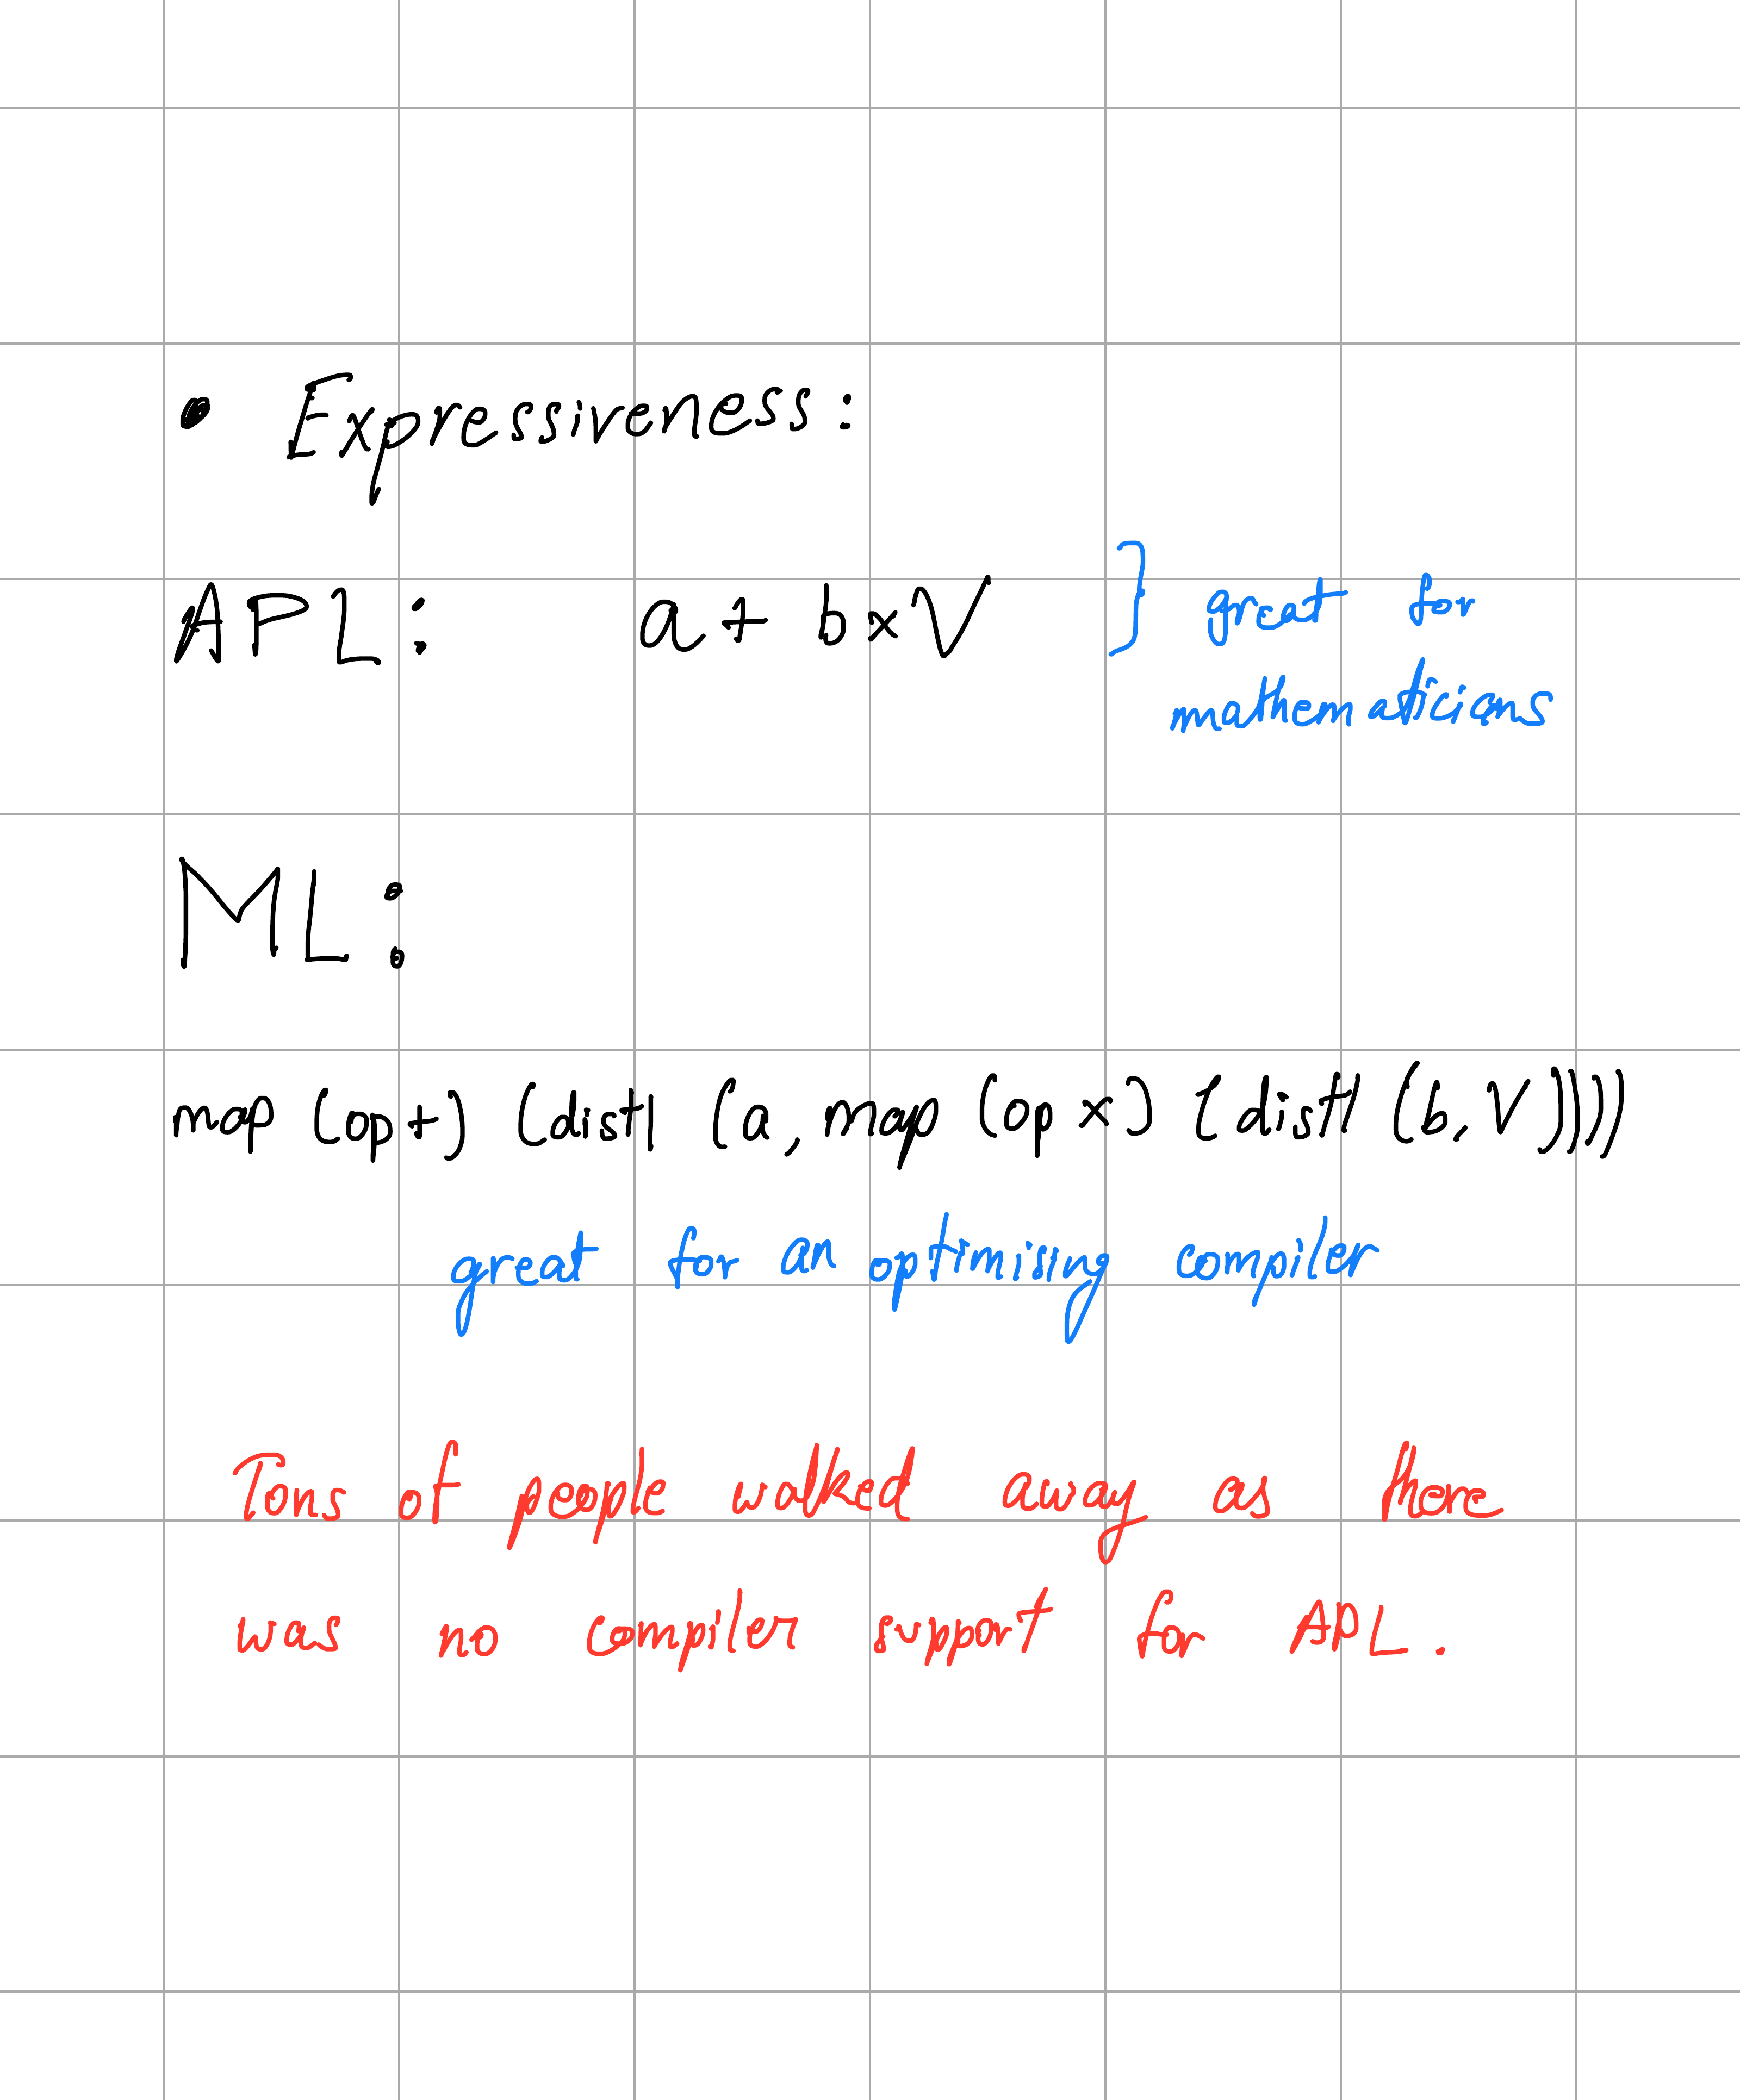 • Expressiveness:
APL: a + b × V } great for
mathematicians
ML:
map (op +) (distl (a, map (op ×) (distl (b, V))))
great for an optimising compiler
Tons of people walked away as there
was no compiler support for APL.